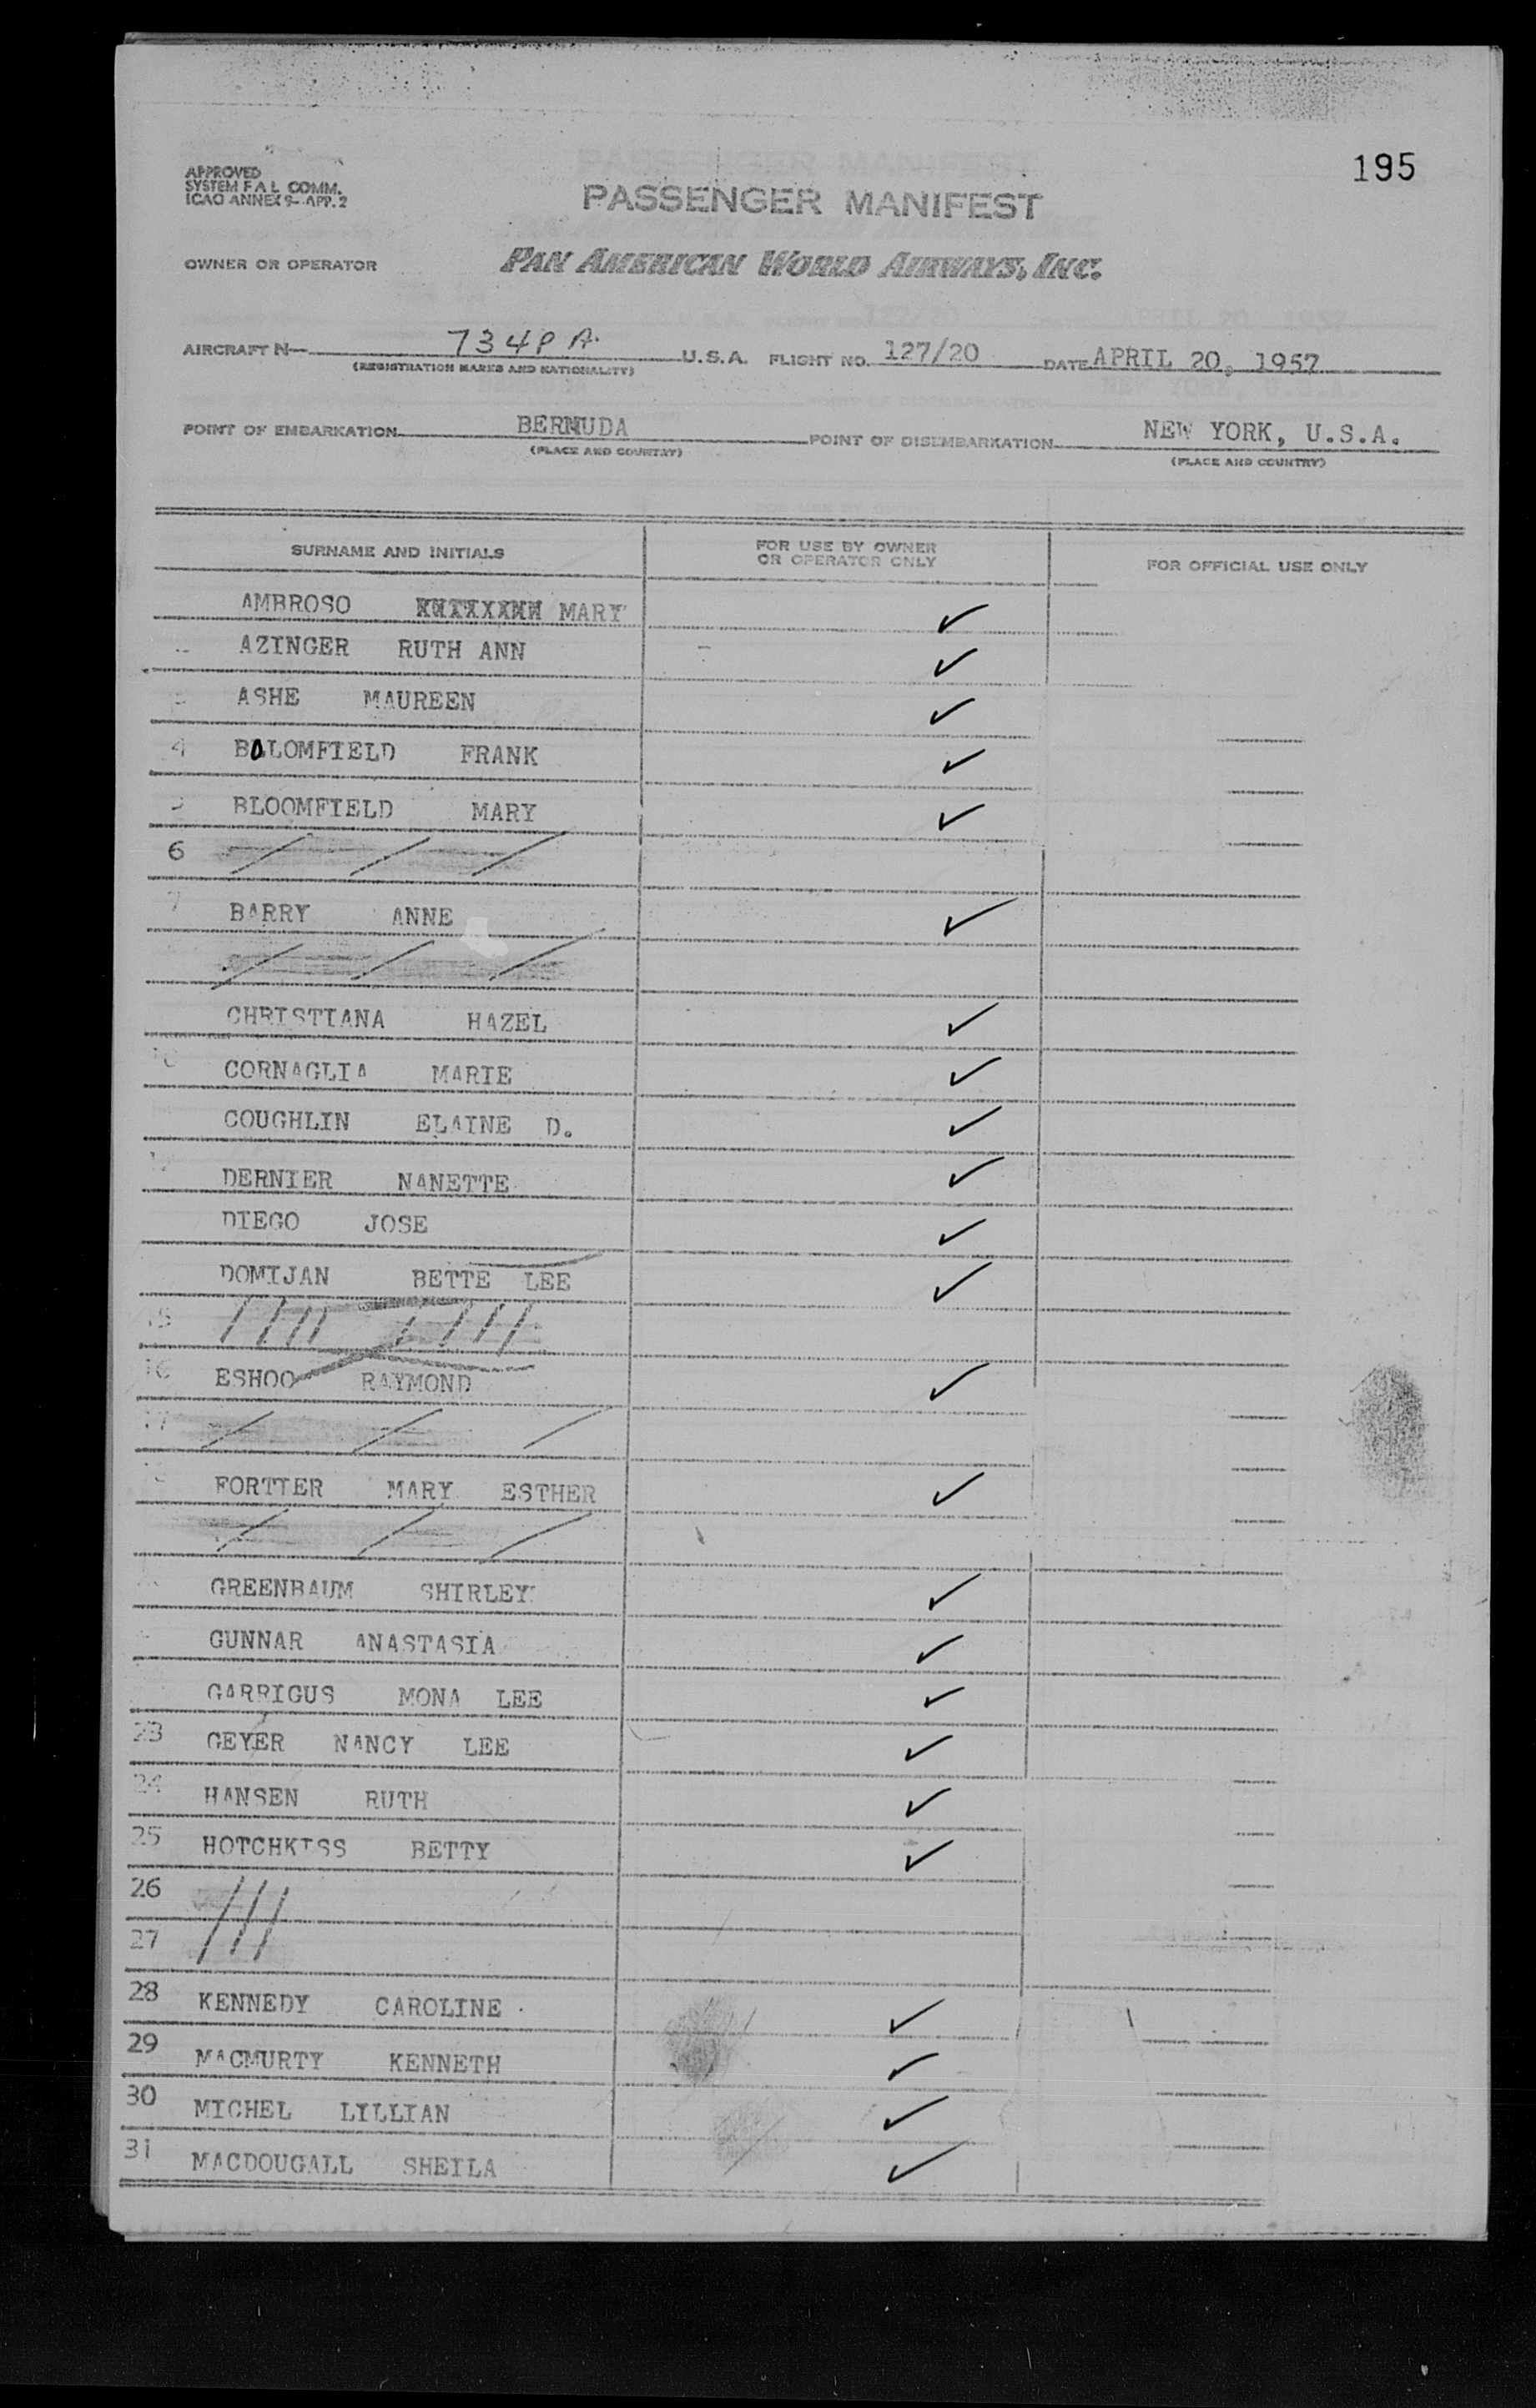 195
APPROVED
SYSTEM F A L COMM.
ICAO ANNEX 9- APP. 2
PASSENGER MANIFEST
OWNER OR OPERATOR PAN AMERICAN WORLD AIRWAYS, INC.
AIRCRAFT N 734PA. U.S.A. FLIGHT NO. 127/20 DATE APRIL 20, 1957
(REGISTRATION MARKS AND NATIONALITY)
POINT OF EMBARKATION BERMUDA POINT OF DISEMBARKATION NEW YORK, U.S.A.
(PLACE AND COUNTRY) (PLACE AND COUNTRY)
SURNAME AND INITIALS FOR USE BY OWNER OR OPERATOR ONLY FOR OFFICIAL USE ONLY
AMBROSO MARY ✓
AZINGER RUTH ANN ✓
ASHE MAUREEN ✓
4 BLOMFIELD FRANK ✓
BLOOMFIELD MARY ✓
6 / / /
7 BARRY ANNE ✓
/ / /
CHRISTIANA HAZEL ✓
10 CORNAGLIA MARIE ✓
COUGHLIN ELAINE D. ✓
DERNIER NANETTE ✓
DIEGO JOSE ✓
DOMIJAN BETTE LEE ✓
15 //// ////
16 ESHOO RAYMOND ✓
17 / / /
FORTIER MARY ESTHER ✓
/ / /
GREENBAUM SHIRLEY ✓
GUNNAR ANASTASIA ✓
GARRIGUS MONA LEE ✓
23 GEYER NANCY LEE ✓
24 HANSEN RUTH ✓
25 HOTCHKISS BETTY ✓
26 ///
27
28 KENNEDY CAROLINE ✓
29 MACMURTY KENNETH ✓
30 MICHEL LILLIAN ✓
31 MACDOUGALL SHEILA ✓